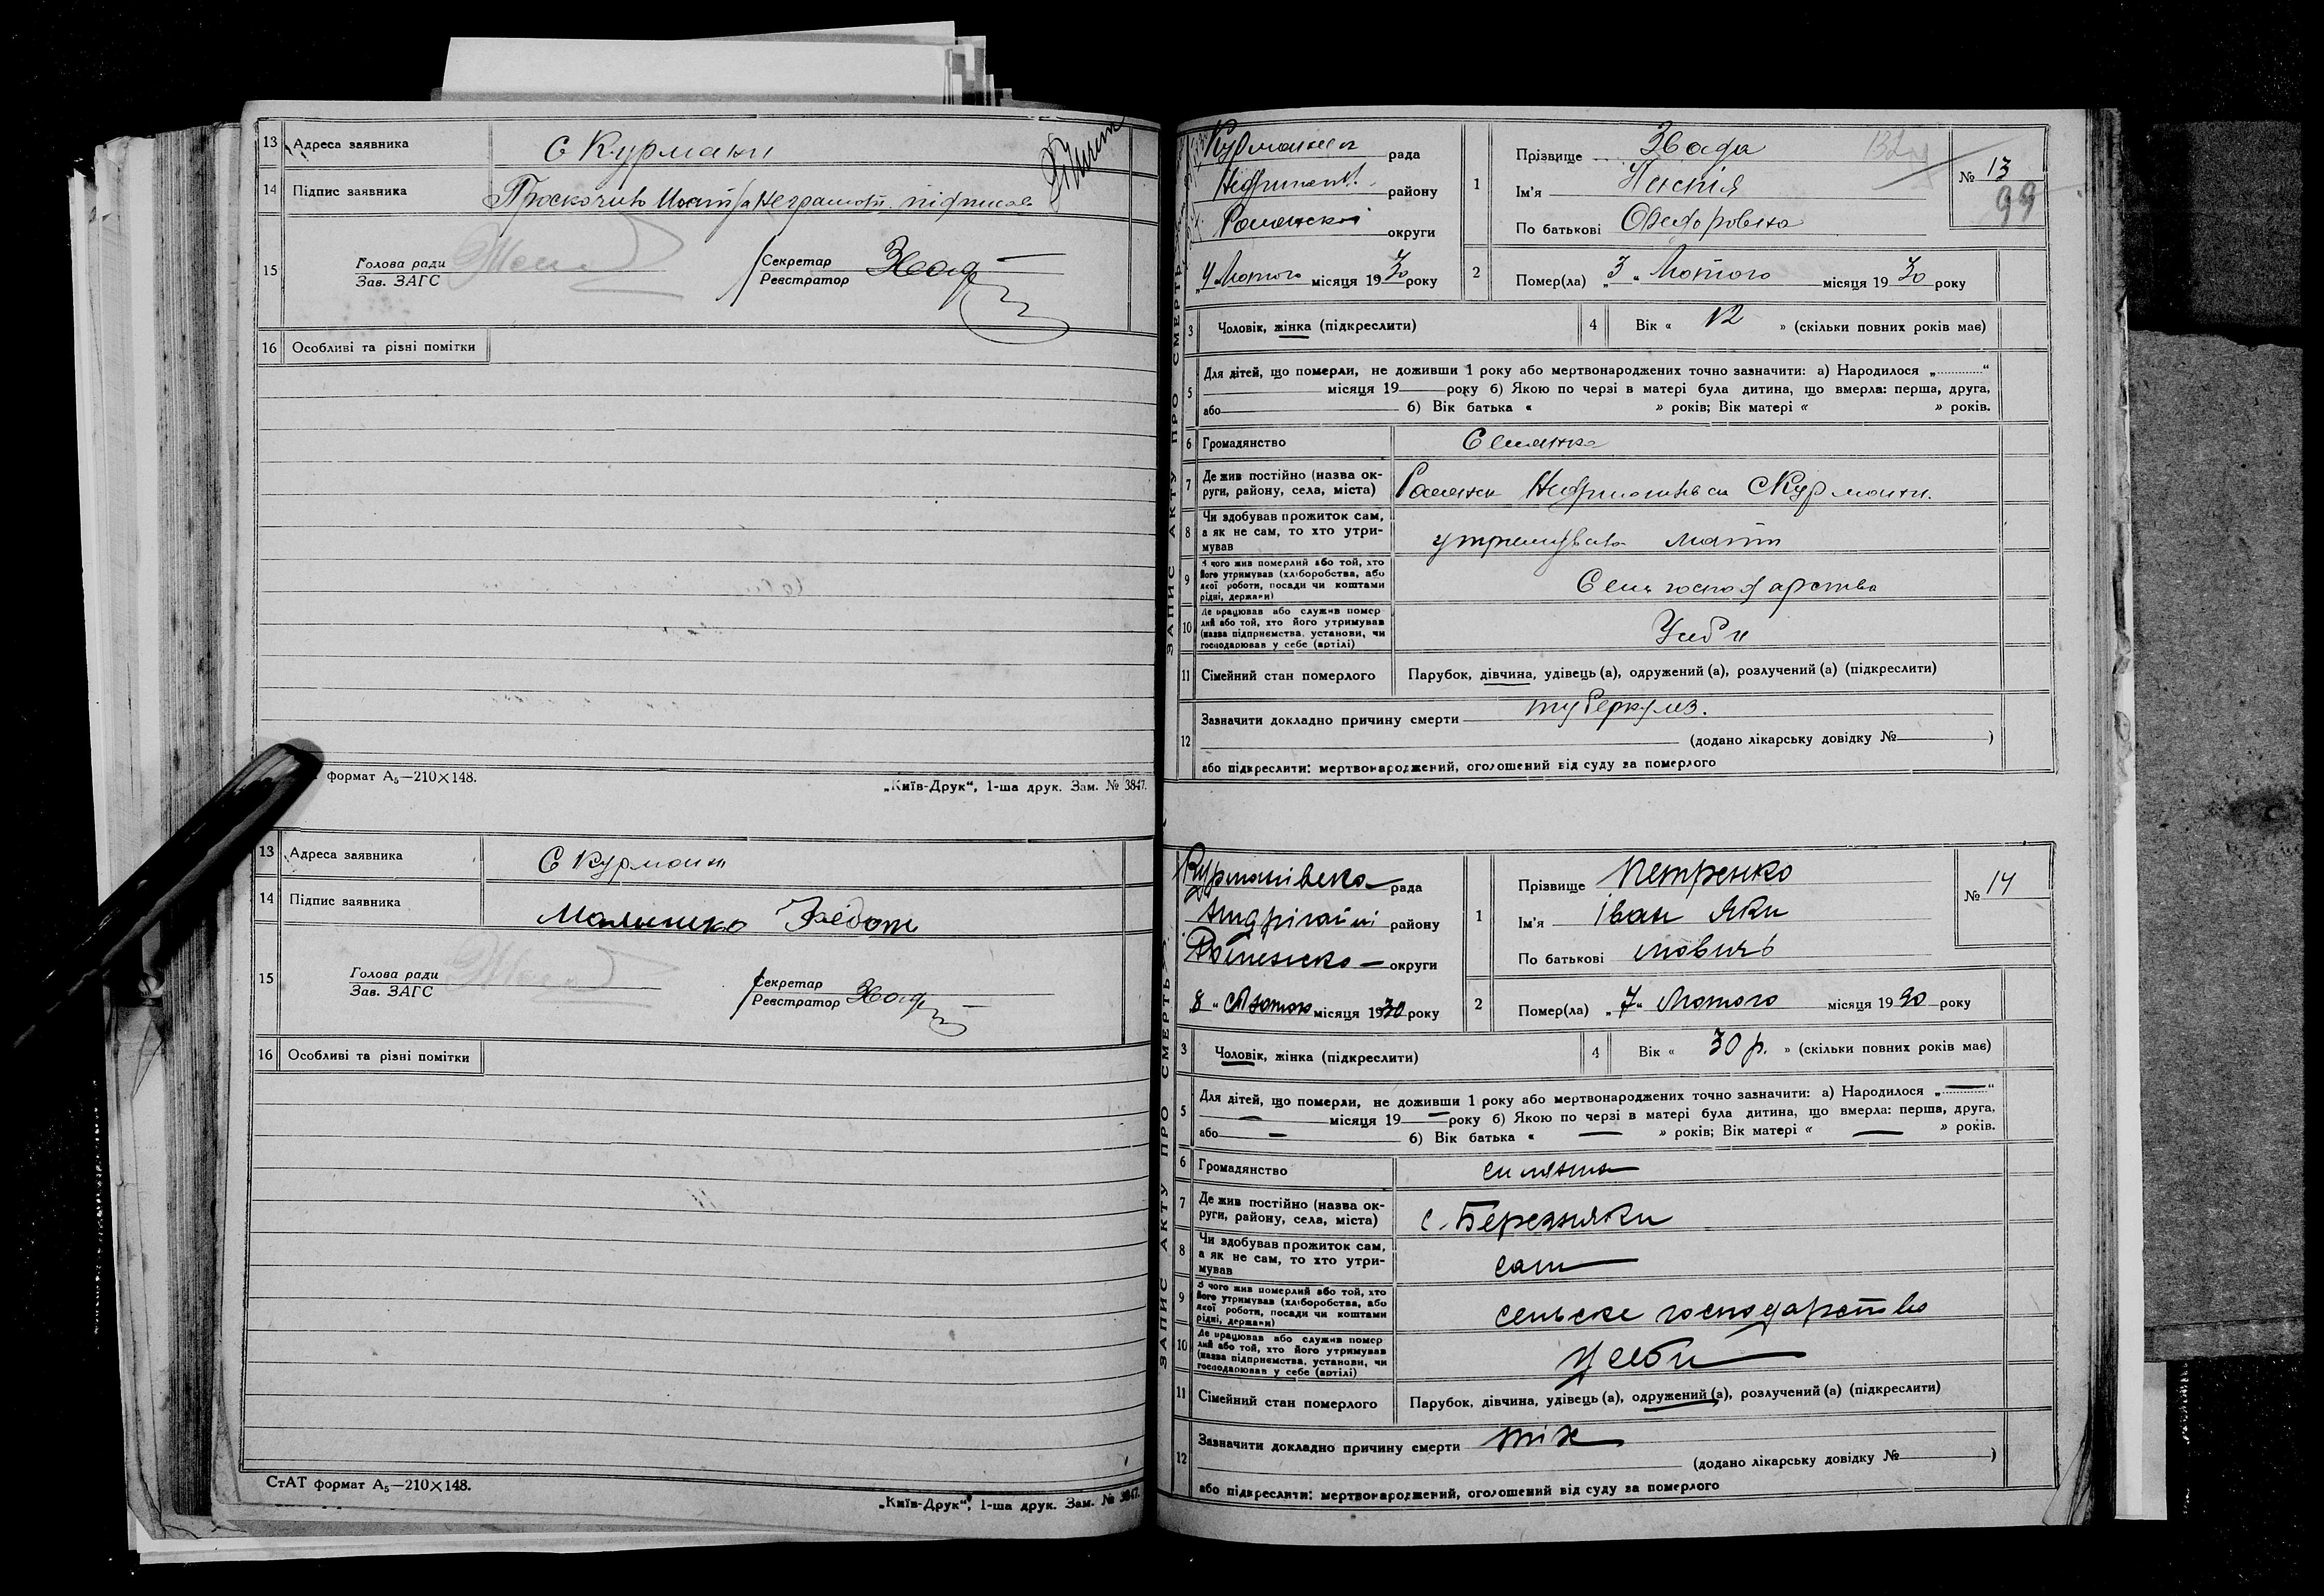 13 Адреса заявника С Курмани
14 Підпис заявника
15 Голова ради
Зав. ЗАГС
Секретар
Реєстратор
16 Особливі та різні помітки
формат А₅—210×148.
„Київ-Друк“, 1-ша друк. Зам. № 3847.
13 Адреса заявника С Курман
14 Підпис заявника Малишко Федот
15 Голова ради
Зав. ЗАГС
Секретар
Реєстратор
16 Особливі та різні помітки
СтАТ формат А₅—210×148.
„Київ-Друк“, 1-ша друк. Зам. № 3847.
ЗАПИС АКТУ ПРО СМЕРТЬ
рада
району
округи
„4“ Лютого місяця 1930 року
1 Прізвище
Ім'я Настія
По батькові Федоровна
№ 13
99
2 Помер(ла) „3“ Лютого місяця 1930 року
3 Чоловік, жінка (підкреслити)
4 Вік « 12 » (скільки повних років має)
5 Для дітей, що померли, не доживши 1 року або мертвонароджених точно зазначити: а) Народилося „............“
місяця 19 року б) Якою по черзі в матері була дитина, що вмерла: перша, друга,
або б) Вік батька « » років; Вік матері « » років.
6 Громадянство Селянка
7 Де жив постійно (назва ок-
руги, району, села, міста)
8 Чи здобував прожиток сам,
а як не сам, то хто утри-
мував
мати
9 З чого жив померлий або той, хто
його утримував (хліборобства, або
якої роботи, посади чи коштами
рідні, держави)
Сель господарства
10 Де працював або служив помер
лий або той, хто його утримував
(назва підприємства, установи, чи
господарював у себе (артілі)
У себ и
11 Сімейний стан померлого Парубок, дівчина, удівець (а), одружений (а), розлучений (а) (підкреслити)
12 Зазначити докладно причину смерти туберкульз.
(додано лікарську довідку № )
або підкреслити: мертвонароджений, оголошений від суду за померлого
ЗАПИС АКТУ ПРО СМЕРТЬ
Курманівска рада
району
округи
„8“ місяця 1930 року
1 Прізвище Петренко
Ім'я Іван Яки
По батькові мовичь
№ 14
2 Помер(ла) „7“ Лютого місяця 1930 року
3 Чоловік, жінка (підкреслити)
4 Вік « 30 р. » (скільки повних років має)
5 Для дітей, що померли, не доживши 1 року або мертвонароджених точно зазначити: а) Народилося „—“
— місяця 19 — року б) Якою по черзі в матері була дитина, що вмерла: перша, друга,
або — б) Вік батька « — » років; Вік матері « — » років.
6 Громадянство
7 Де жив постійно (назва ок-
руги, району, села, міста)
с. Березняки
8 Чи здобував прожиток сам,
а як не сам, то хто утри-
мував
сам
9 З чого жив померлий або той, хто
його утримував (хліборобства, або
якої роботи, посади чи коштами
рідні, держави)
сельске господарство
10 Де працював або служив помер
лий або той, хто його утримував
(назва підприємства, установи, чи
господарював у себе (артілі)
У себи
11 Сімейний стан померлого Парубок, дівчина, удівець (а), одружений (а), розлучений (а) (підкреслити)
12 Зазначити докладно причину смерти
(додано лікарську довідку № )
або підкреслити: мертвонароджений, оголошений від суду за померлого